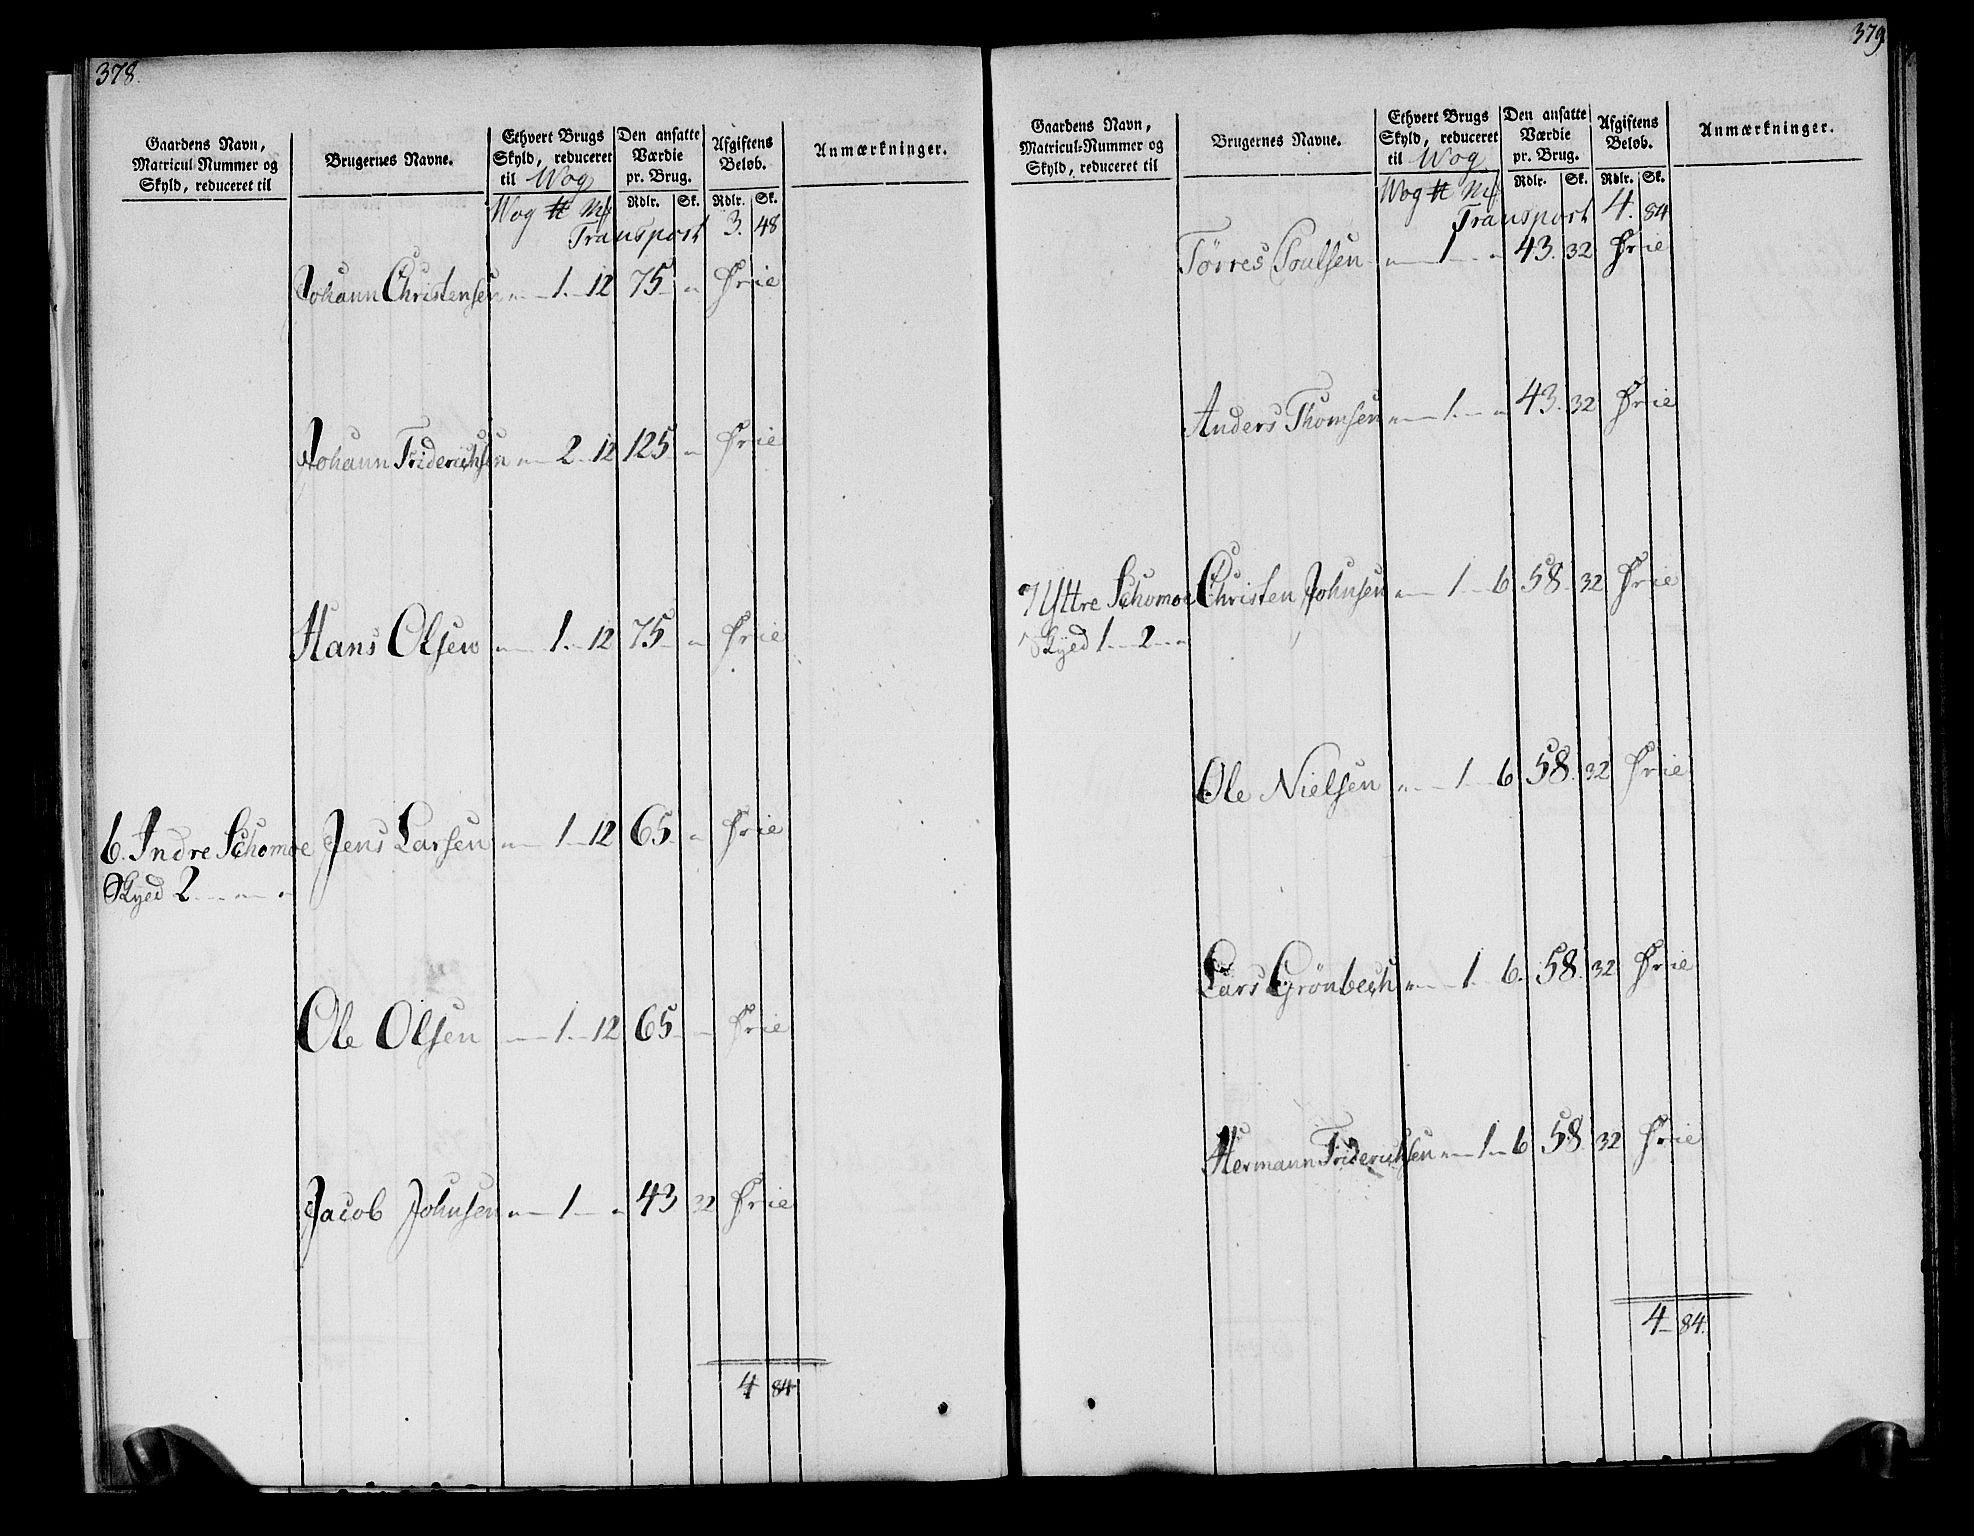 378.
Gaardens Navn, Matricul-Nummer og Skyld, reduceret til
Brugernes Navne.
Ethvert Brugs Skyld, reduceret til Wog
Den ansatte Værdie pr. Brug.
Afgiftens Beløb.
Anmærkninger.
Wog ℔ Mk Rdlr. Sk. Rdlr. Sk.
Transport 3. 48
Johann Christensen „ — 1. — 12 75 — „ Frie
Johann Friderichsen „ — 2 — 12 125 — „ Frie
Hans Olsen „ — 1. — 12 75 — „ Frie
6. Indre Schomoe Jens Larsen „ — 1 — 12 65 — „ Frie
Skyed 2 — „ — „
Ole Olsen „ — 1 — 12 65 — „ Frie
Jacob Johnsen „ — 1 — „ 43 32 Frie
4 84
379
Gaardens Navn, Matricul-Nummer og Skyld, reduceret til
Brugernes Navne.
Ethvert Brugs Skyld, reduceret til Wog
Den ansatte Værdie pr. Brug.
Afgiftens Beløb.
Anmærkninger.
Wog ℔ Mk Rdlr. Sk. Rdlr. Sk.
Transport 4. 84
Törres Poulsen „ — 1 — „ 43. 32 Frie
Anders Thomsen „ — 1. — „ 43. 32 Frie
7 Yttre Schomoe Christen Johnsen „ — 1 — 6 58. 32 Frie
Skyed 1 — 2 — „
Ole Nielsen „ — 1 — 6 58. 32 Frie
Lars Grönbech „ — 1 — 6. 58. 32 Frie
Hermann Friderichsen „ — 1 — 6 58. 32 Frie
4 — 84.